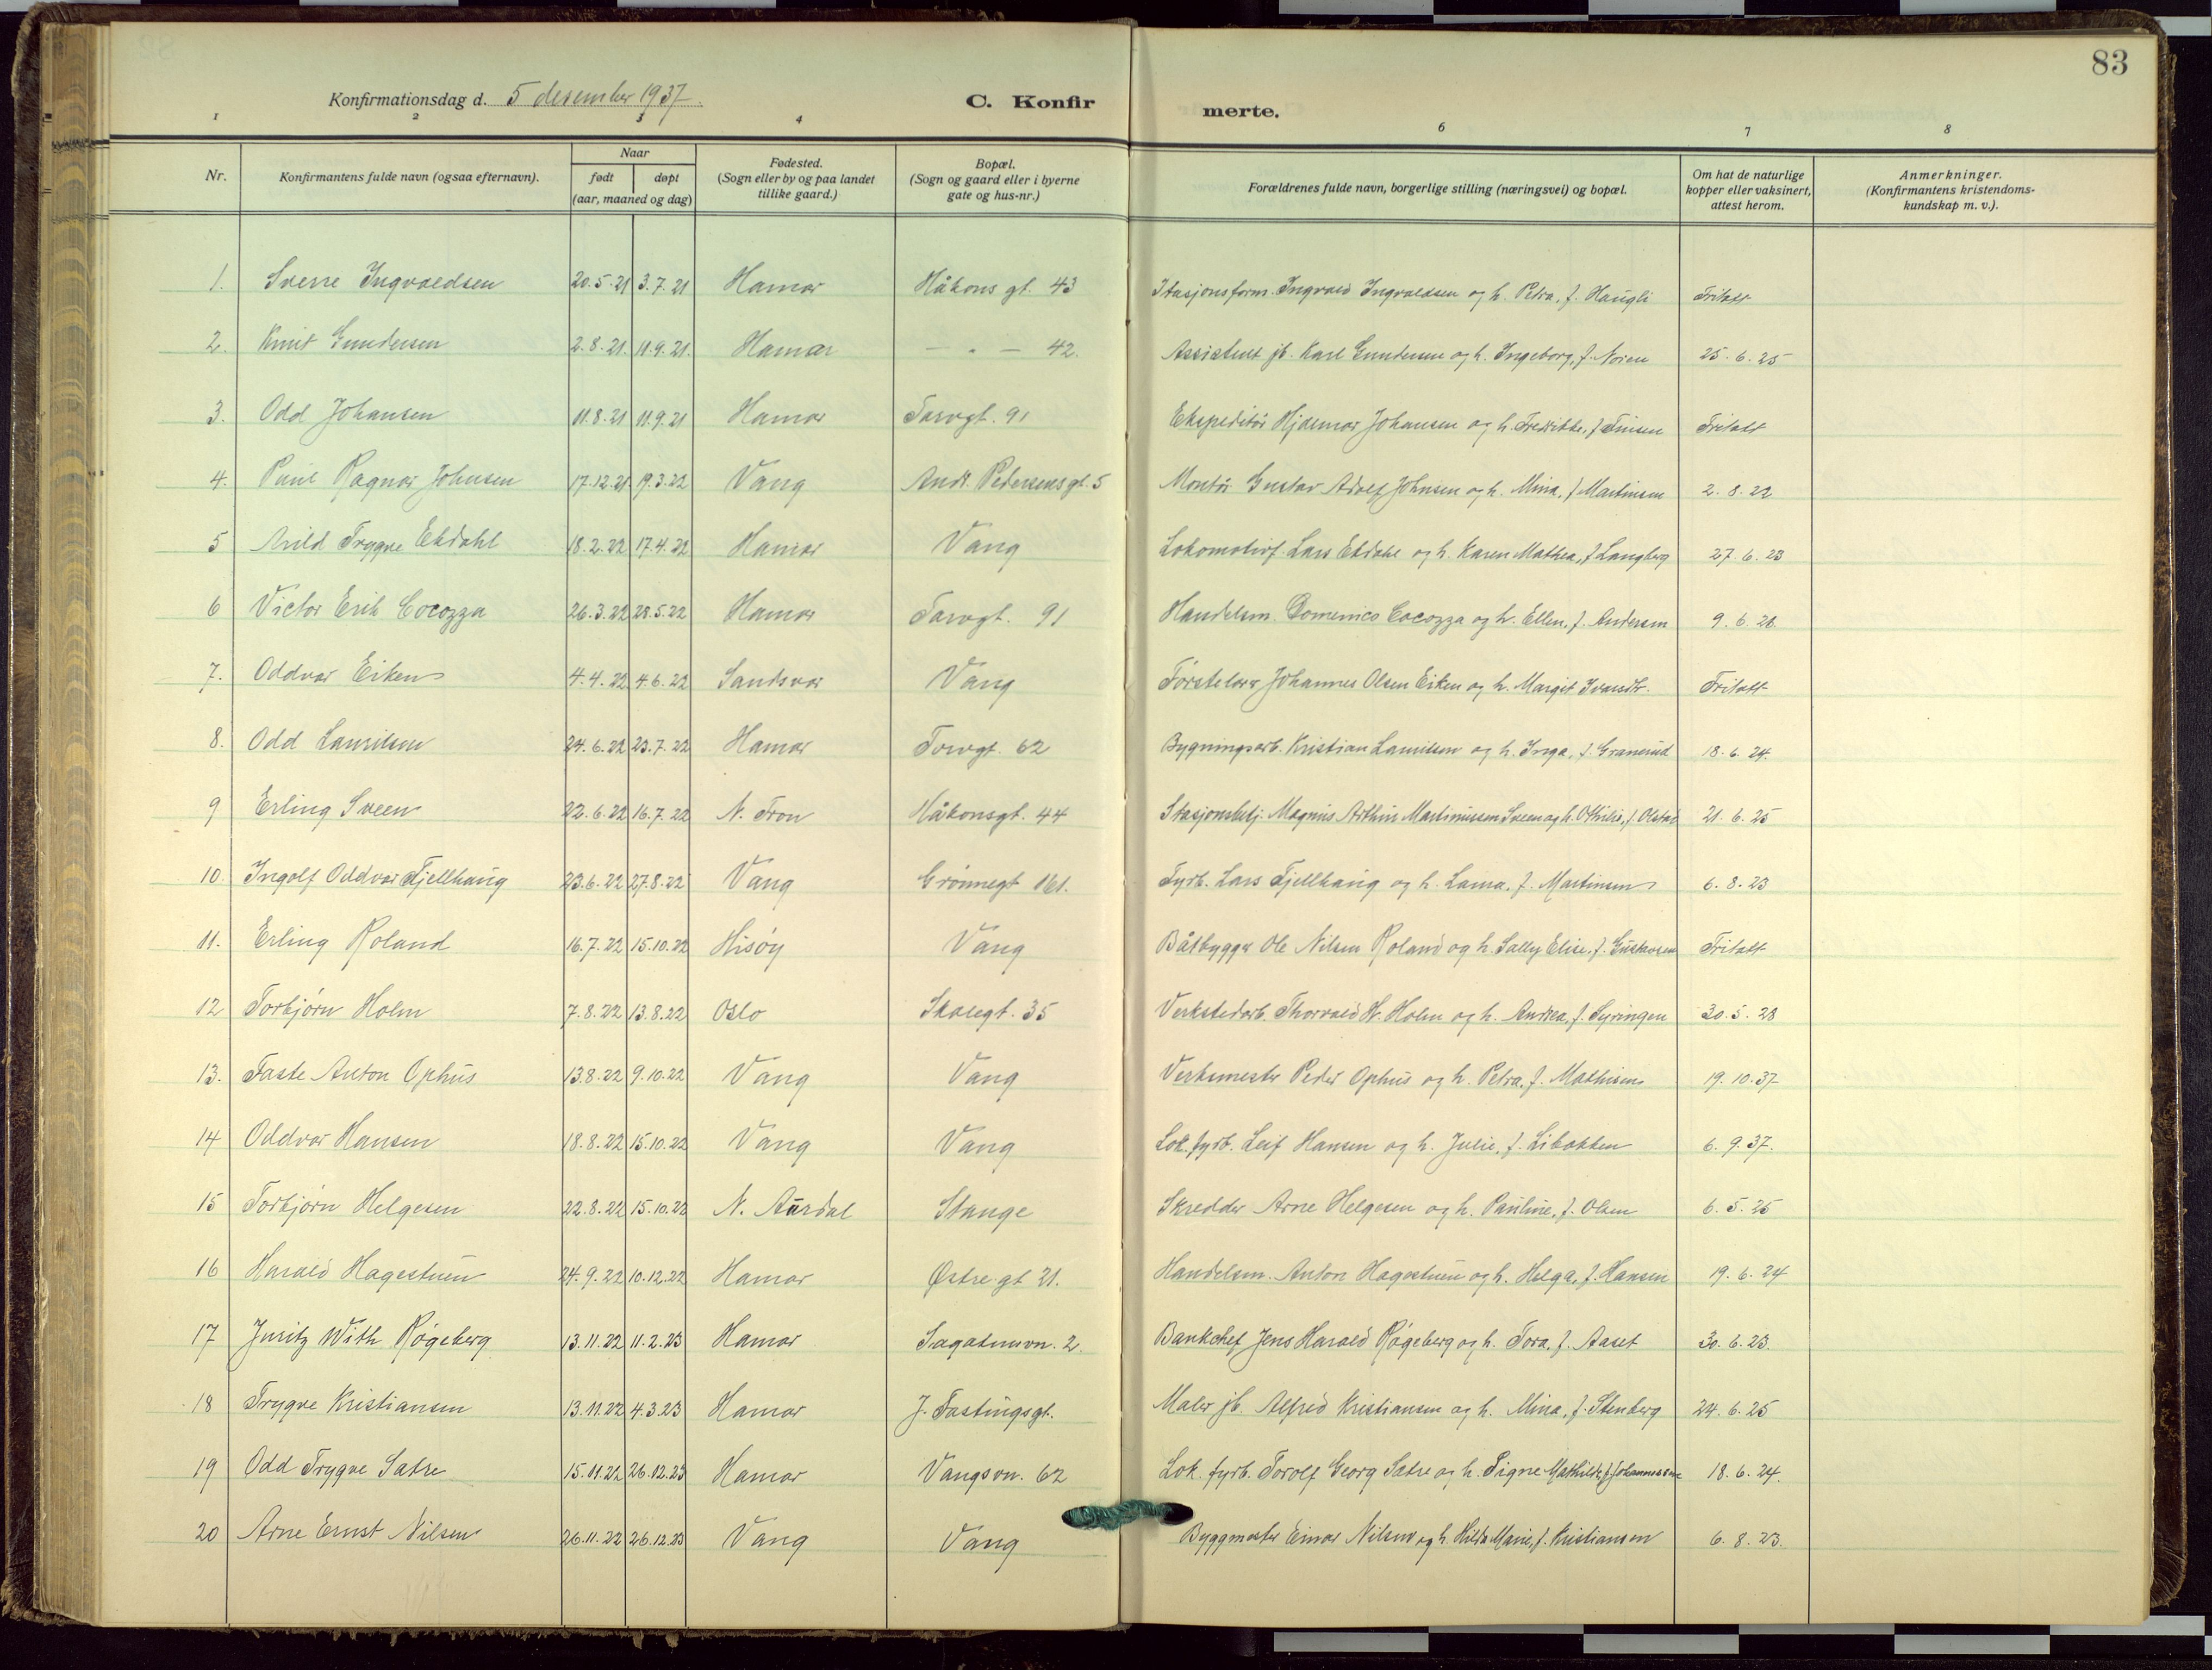 83
Konfirmationsdag d. 5 desember 1937.
C. Konfir merte.
1 2 3 4 6 7 8
Nr. | Konfirmantens fulde navn (ogsaa efternavn). | Naar født | døpt (aar, maaned og dag) | Fødested. (Sogn eller by og paa landet tillike gaard.) | Bopæl. (Sogn og gaard eller i byerne gate og hus-nr.) | Forældrenes fulde navn, borgerlige stilling (næringsvei) og bopæl. | Om hat de naturlige kopper eller vaksinert, attest herom. | Anmerkninger. (Konfirmantens kristendoms-kundskap m. v.).
1. Sverre Ingvaldsen 20.5.21 3.7.21 Hamar Håkons gt. 43 Stasjonsform. Ingvald Ingvaldsen og h. Petra, f. Haugli Fritatt
2. Knut Gundersen 2.8.21. 11.9.21. Hamar — " — 42. Assistent jb. Karl Gundersen og h. Ingeborg, f. Noren 25.6.25
3. Odd Johansen 11.8.21 11.9.21 Hamar Torvgt. 91 Ekspeditør Hjalmar Johansen og h. Fredrikke, f. Finsen Fritatt
4. Paul Ragnar Johnsen 17.12.21 19.3.22 Vang Andr. Pedersens gt. 5 Montør Gustav Adolf Johnsen og h. Mina, f. Martinsen 2.8.22
5 Arild Trygve Ekdahl 18.2.22 17.4.22 Hamar Vang Lokomotivf. Lars Ekdahl og h. Karen Mathea, f. Langberg 27.6.23
6 Victor Erik Cocozza 26.3.22 28.5.22 Hamar Torvgt. 91 Handelsm. Domenico Cocozza og h. Ellen, f. Andersen 9.6.28.
7. Oddvar Eiken 4.4.22 4.6.22 Sandsvær Vang Førstelærer Johannes Olsen Eiken og h. Margit Fritatt
8. Odd Lauritsen 24.6.22 23.7.22 Hamar Torvgt. 62 Bygningsarb. Kristian Lauritsen og h. Inga, f. Granerud 18.6.24.
9 Erling Sveen 22.6.22 16.7.22 N. Fron Håkonsgt. 44 Stasjonsbetj. Magnus Arthur Martinussen Sveen og h. Othilie, f. Olstad 21.6.25
10. Ingolf Oddvar Fjellhaug 23.6.22 27.8.22 Vang Grønnegt 161. Fyrb. Lars Fjellhaug og h. Laura, f. Martinsen 6.8.23
11. Erling Roland 16.7.22 15.10.22 Hisøy Vang Båtbygger Ole Nilsen Roland og h. Sally Elise, f. Gustavsen Fritatt
12 Torbjørn Holm 7.8.22 13.8.22 Oslo Skolegt. 35 Verkstedarb. Thorvald H. Holm og h. Andrea, f. Syringen 30.5.28
13. Faste Anton Ophus 13.8.22 9.10.22 Vang Vang Verksmester Peder Ophus og h. Petra, f. Mathisen 19.10.37
14 Oddvar Hansen 18.8.22 15.10.22 Vang Vang Lok. fyrb. Leif Hansen og h. Julie, f. Libakken 6.9.37.
15 Torbjørn Helgesen 22.8.22 15.10.22 N. Aurdal Stange Skredder Arne Helgesen og h. Pauline, f. Olsen 6.5.25
16 Harald Hagestuen 24.9.22 10.12.22 Hamar Østre gt 21. Handelsm. Anton Hagestuen og h. Helga, f. Hansen 19.6.24
17 Juritz With Røgeberg 13.11.22 11.2.23 Hamar Sagatunvn. 2. Bankchef Jens Harald Røgeberg og h. Tora, f. Aaset 30.6.23.
18 Trygve Kristiansen 13.11.22 4.3.23 Hamar J. Fastings gt. Maler jb. Alfred Kristiansen og h. Mina, f. Stenberg 24.6.25
19 Odd Trygve Satre 15.11.22 26.12.23 Hamar Vangsvn. 62 Lok. fyrb. Torolf Georg Satre og h. Signe Mathilde, f. Johannessen 18.6.24.
20 Arne Ernst Nilsen 26.11.22 26.12.23 Vang Vang Byggmester Einar Nilsen og h. Hilda Marie, f. Kristiansen 6.8.23.